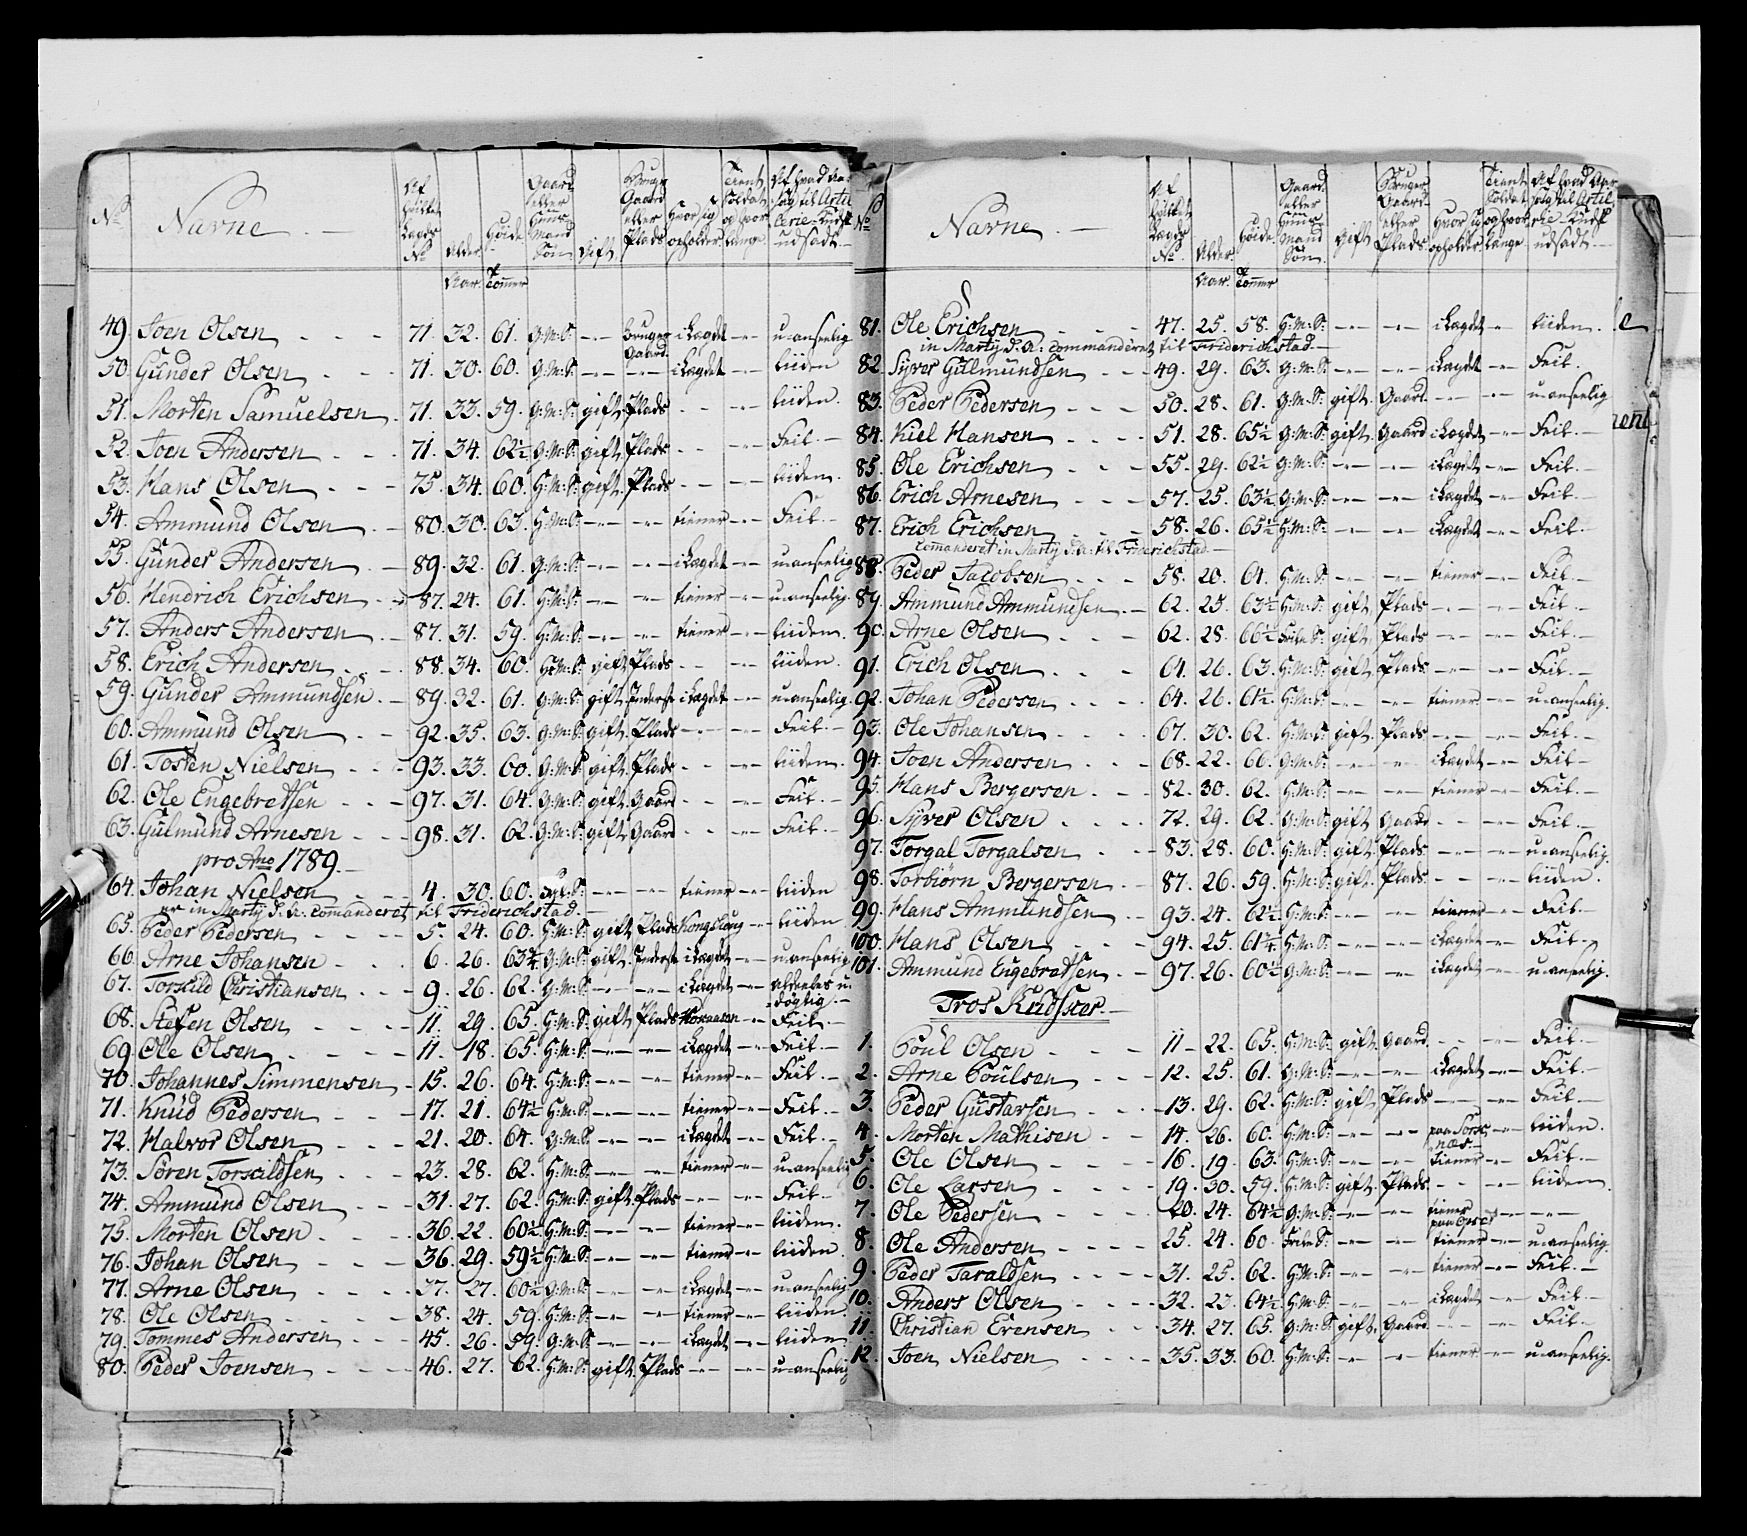 No. Navne. Af hvilket Lægds No Alder. Høide Gaard eller Huus Mand Søn Gift. Bruger Gaard eller Plads Hvor sig opholder Tient Soldat og hvor længe Af hvad Aarsag til Artillerie Kudsk udsadt
Aar. Tommer
49. Joen Olsen 71. 32. 61. G:M:S: Bruger Gaard i Lægdet u-anseelig
50. Gunder Olsen 71. 30. 60. G:M:S: i Lægdet liiden
51. Morten Samuelsen 71. 33. 59. G:M:S: gift Plads liiden.
52. Joen Andersen 71. 34. 62½ G:M:S: gift Plads Feil.
53. Hans Olsen 75. 34. 60. H:M:S: gift Plads liiden.
54. Ammund Olsen 80. 30. 63. H:M:S: tiener Feil.
55. Gunder Andersen 89. 32. 61. G:M:S: i Lægdet u-anseelig
56. Hendrich Erichsen 87. 24. 61. H:M:S: tiener u-anseelig.
57. Anders Andersen 87. 31. 59. H:M:S: tiener liiden.
58. Erich Andersen 88. 34. 60. H:M:S: gift Plads liiden.
59. Gunder Ammundsen 89. 32. 61. G:M:S: gift Inderst i Lægdet u-anseelig.
60. Ammund Olsen 92. 35. 63. G:M:S: gift Plads Feil.
61. Tosten Nielsen 93. 33. 60. G:M:S: gift Plads liiden.
62. Ole Engebretsen 97. 31. 64. G:M:S: gift Gaard Feil.
63. Gulmund Arnesen 98. 31. 62. G:M:S: gift Gaard Feil.
pro Ano 1789.
64. Johan Nielsen 4. 30. 60. tiener liiden
er in Marty d: A: Comanderet til Friderichstad.
65. Peder Pedersen 5. 24. 60. H:M:S: gift Plads Kongsberg liiden
66. Arne Johansen 6. 26. 63¾ G:M:S: gift Inderst i Lægdet u-anseelig
67. Torskild Christiansen 9. 26. 62. G:M:S: i Lægdet aldeeles u-døgtig.
68. Stefen Olsen 11. 29. 65. H:M:S: gift Plads Feil.
69. Ole Olsen 11. 18. 65. H:M:S: i Lægdet Feil.
70. Johannes Simmensen 15. 26. 64. H:M:S: tiener Feil.
71. Knud Pedersen 17. 21. 64½ H:M:S: tiener Feil.
72. Halvor Olsen 21. 20. 64. G:M:S: i Lægdet Feil.
73. Søren Torskildsen 23. 28. 62. H:M:S: tiener u-anseelig
74. Ammund Olsen 31. 27. 62. H:M:S: gift Plads Feil.
75. Morten Olsen 36. 22. 60½ H:M:S: tiener liiden.
76. Johan Olsen 36. 29. 59½ H:M:S: tiener liiden.
77. Arne Olsen 37. 27. 60½ G:M:S: i Lægdet u-anseelig.
78. Ole Olsen 38. 24. 59. H:M:S: tiener liiden
79. Tommes Andersen 45. 26. 59. G:M:S: i Lægdet liiden
80. Peder Joensen 46. 27. 62. H:M:S: gift Plads u-anseelig
No. Navne. Af hvilket Lægds No. Alder. Høide Gaard eller Huus Mand Søn. Gift Bruger Gaard eller Plads Hvor sig opholder Tient Soldat og hvor længe Af hvad Aarsag til Artillerie Kudsk udsadt
Aar. Tommer
81. Ole Erichsen 47. 25. 58. H:M:S: i Lægdet liiden.
in Marty d: A: Commanderet til Friderichstad.
82. Syver Gulmundsen 49. 29. 63. G:M:S: i Lægdet Feil.
83. Peder Pedersen 50. 28. 61. G:M:S: gift Gaard. u-anseelig
84. Kiel Hansen 51. 28. 65½ G:M:S: gift Gaard i Lægdet Feil.
85. Ole Erichsen 55. 29. 62½ G:M:S: i Lægdet Feil.
86. Erich Arnesen 57. 25. 63½ G:M:S: i Lægdet Feil.
87. Erich Erichsen 58. 26. 65½ H:M:S: i Lægdet Feil.
Comanderet in Marty d: A: til Friderichstad.
88. Peder Jacobsen 58. 20. 64. H:M:S: tiener Feil.
89. Ammund Ammundsen 62. 25. 63½ H:M:S: gift Plads Feil.
90. Arne Olsen 62. 28. 66½ gift Plads Feil.
91. Erich Olsen 64. 26. 63. H:M:S: gift Plads Feil.
92. Johan Pedersen 64. 26. 61½ H:M:S: tiener u-anseelig.
93. Ole Johansen 67. 30. 62. H:M:S: gift Plads Feil.
94. Joen Andersen 68. 22. 66. G:M:S: i Lægdet Feil
95. Hans Bergersen 82. 30. 62. H:M:S: tiener Feil.
96. Syver Olsen 72. 29. 62. G:M:S: gift Gaard Feil.
97. Torgal Torgalsen 83. 28. 60. H:M:S: gift Plads u-anseelig.
98. Torbiørn Bergersen 87. 26. 59. H:M:S: gift Plads liiden.
99. Hans Ammundsen 93. 24. 62½ H:M:S: tiener Feil.
100. Hans Olsen 94. 25. 61¾ H:M:S: i Lægdet Feil.
101. Ammund Engebretsen 97. 26. 60½ G:M:S: i Lægdet u-anseelig.
Tros Kudsker.
1. Poul Olsen 11 22. 65. H:M:S: gift Gaard Feil.
2. Arne Poulsen 12. 25. 61. G:M:S: i Lægdet Feil.
3. Peder Gustavsen 13. 29. 62. H:M:S: gift Plads Feil.
4. Morten Mathisen 14. 26. 60. H:M:S: liiden.
5. Ole Olsen 16. 19. 63. H:M:S: tiener Feil.
6. Ole Larsen 19. 30. 59. H:M:S: gift Plads liiden
7. Ole Pedersen 20. 24. 64½ G:M:S: tiener
8. Ole Andersen 25. 24. 60 tiener u-anseelig.
9. Peder Taraldsen 31. 25. 62. H:M:S: tiener Feil.
10. Anders Olsen 32. 23. 64½ H:M:S: i Lægdet Feil.
11. Christian Erensen 34. 27. 65. G:M:S: gift Gaard Feil.
12. Joen Nielsen 35. 33. 60. H:M:S: tiener u-anseelig.